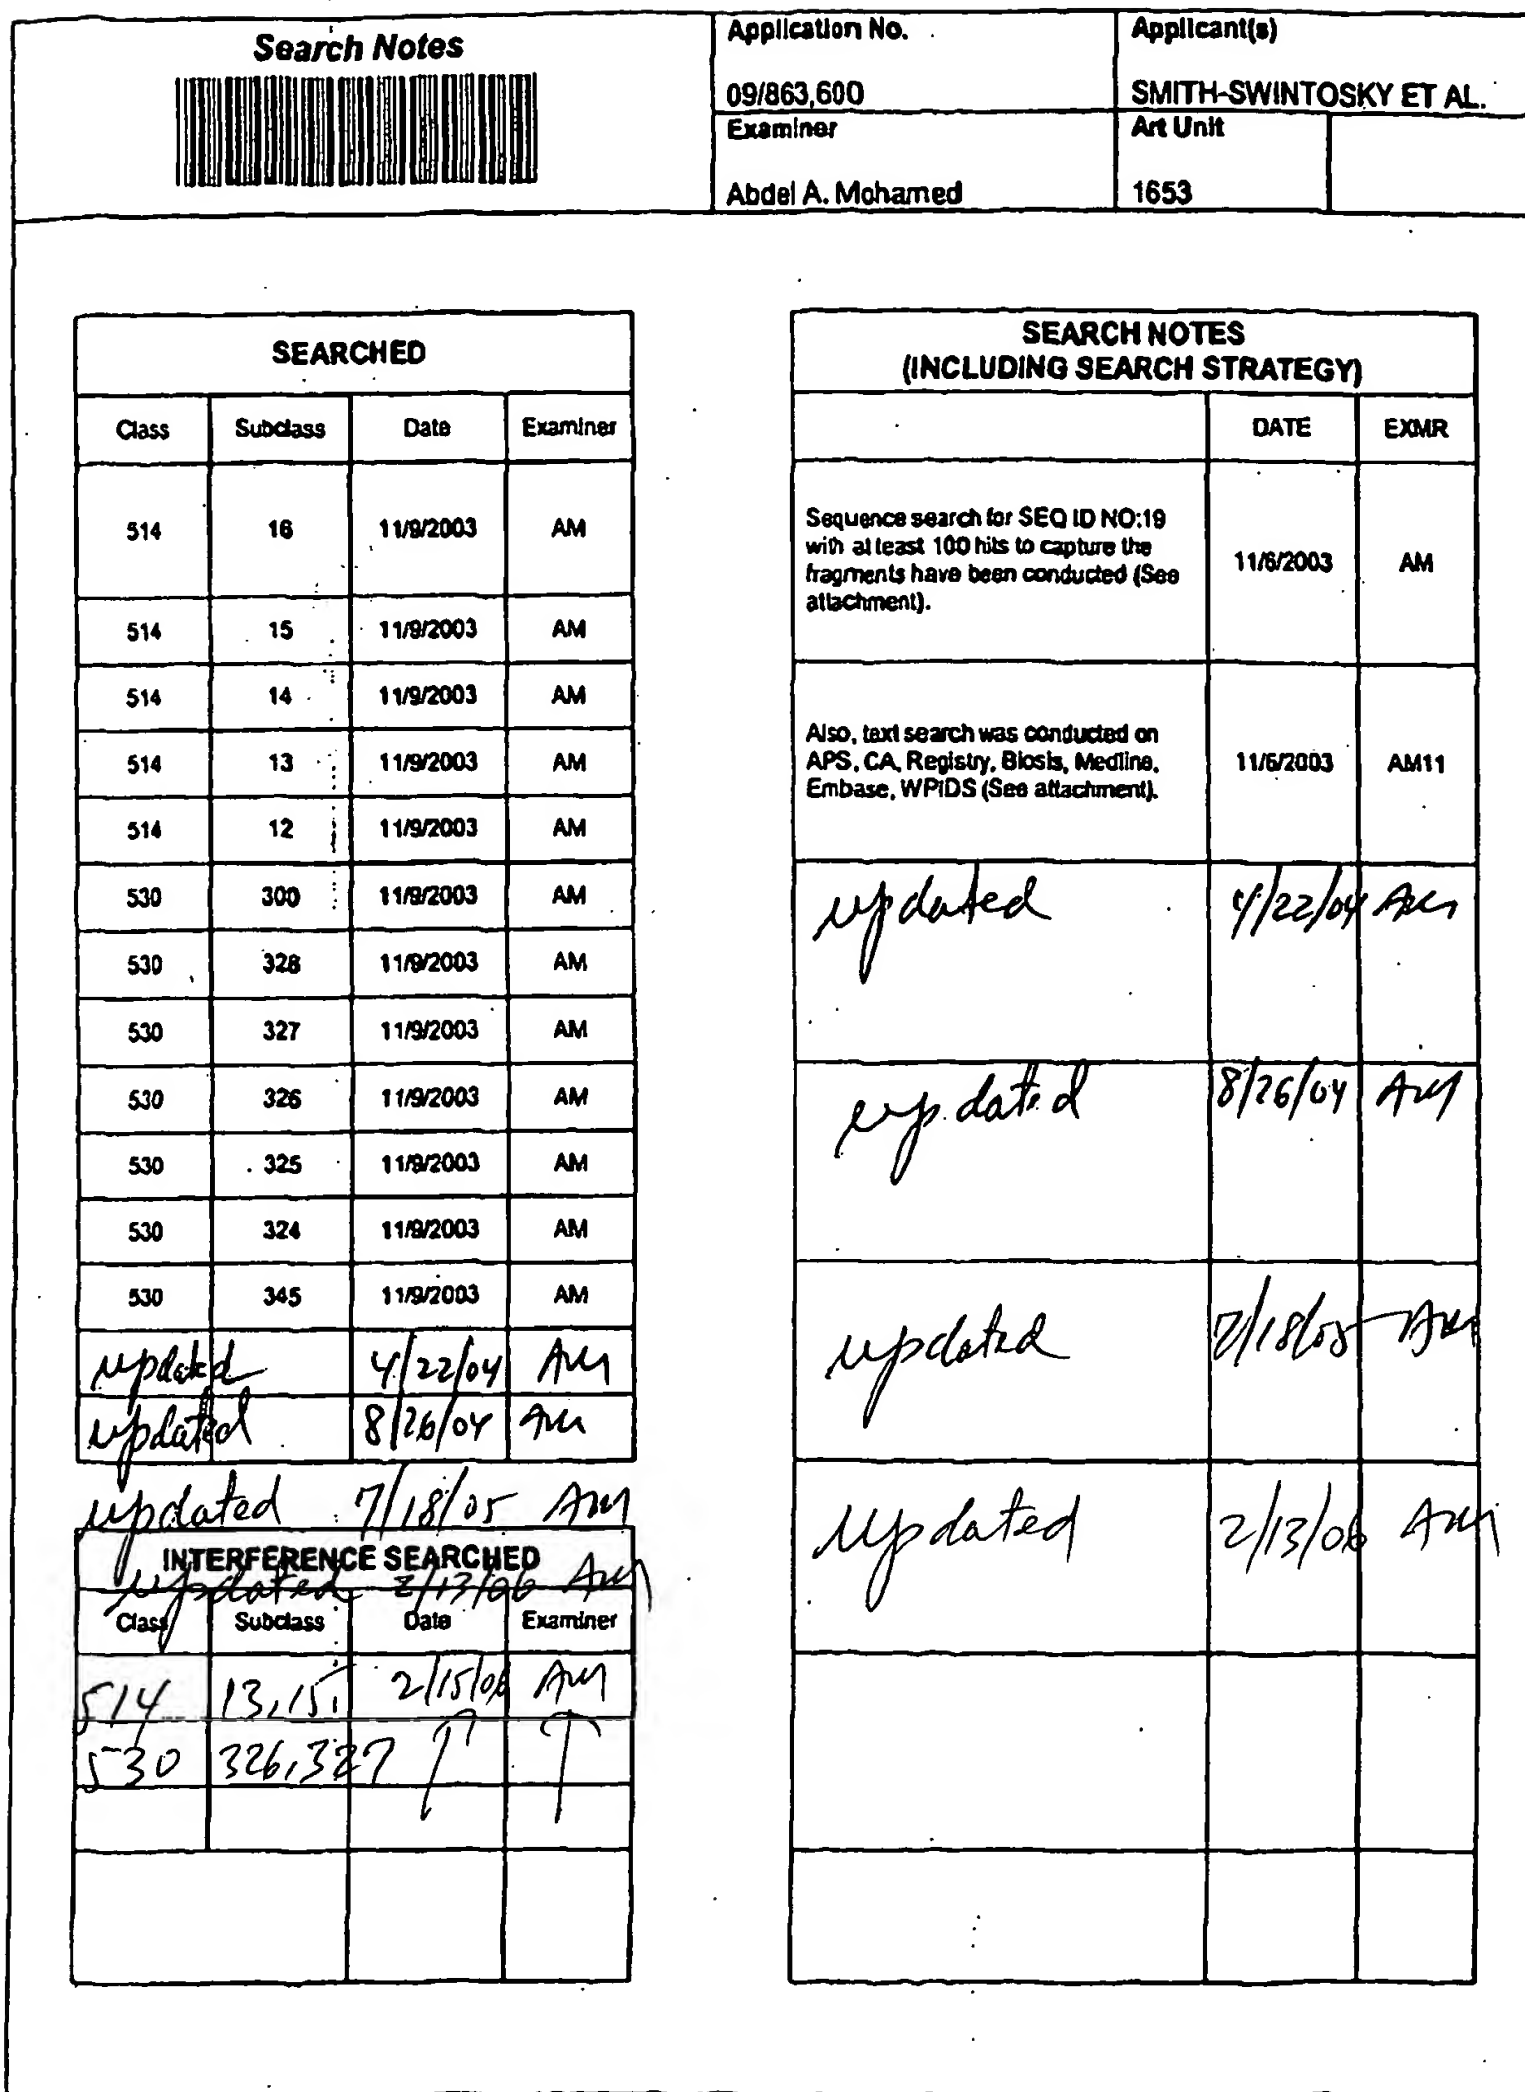 Search Notes
Application No.
09/863,600
Applicant(s)
SMITH-SWINTOSKY ET AL.
Examiner
Abdel A. Mohamed
Art Unit
1653
SEARCHED
Class Subclass Date Examiner
514 16 11/9/2003 AM
514 15 11/9/2003 AM
514 14 11/9/2003 AM
514 13 11/9/2003 AM
514 12 11/9/2003 AM
530 300 11/9/2003 AM
530 328 11/9/2003 AM
530 327 11/9/2003 AM
530 326 11/9/2003 AM
530 325 11/9/2003 AM
530 324 11/9/2003 AM
530 345 11/9/2003 AM
updated 4/22/04 AM
updated 8/26/04 AM
updated 7/18/05 AM
INTERFERENCE SEARCHED
updated 2/13/06 AM
Class Subclass Date Examiner
514 13,15, 2/15/06 AM
530 326,327
SEARCH NOTES
(INCLUDING SEARCH STRATEGY)
DATE EXMR
Sequence search for SEQ ID NO:19
with at least 100 hits to capture the
fragments have been conducted (See
attachment).
11/6/2003 AM
Also, text search was conducted on
APS, CA, Registry, Biosis, Medline,
Embase, WPIDS (See attachment).
11/6/2003 AM11
updated 4/22/04 AM
updated 8/26/04 AM
updated 7/18/05 AM
updated 2/13/06 AM